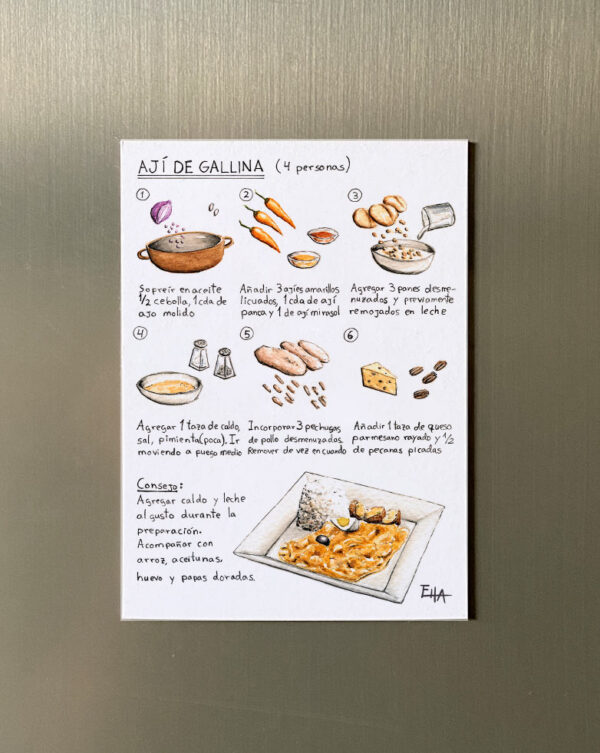 AJÍ DE GALLINA (4 personas)
1
Sofreír en aceite
1/2 cebolla, 1 cda de
ajo molido
2
Añadir 3 ajíes amarillos
licuados, 1 cda de ají
panca y 1 de ají mirasol
3
Agregar 3 panes desme-
nuzados y previamente
remojados en leche
4
Agregar 1 taza de caldo,
sal, pimienta (poca). Ir
moviendo a fuego medio
5
Incorporar 3 pechugas
de pollo desmenuzadas.
Remover de vez en cuando
6
Añadir 1 taza de queso
parmesano rayado y 1/2
de pecanas picadas
Consejo:
Agregar caldo y leche
al gusto durante la
preparación.
Acompañar con
arroz, aceitunas,
huevo y papas doradas.
EHA